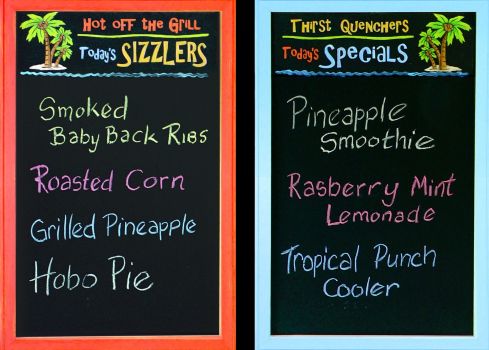 Hot off the Grill
Today's SIZZLERS
Smoked
Baby Back Ribs
Roasted Corn
Grilled Pineapple
Hobo Pie
Thirst Quenchers
Today's Specials
Pineapple
Smoothie
Rasberry Mint
Lemonade
Tropical Punch
Cooler